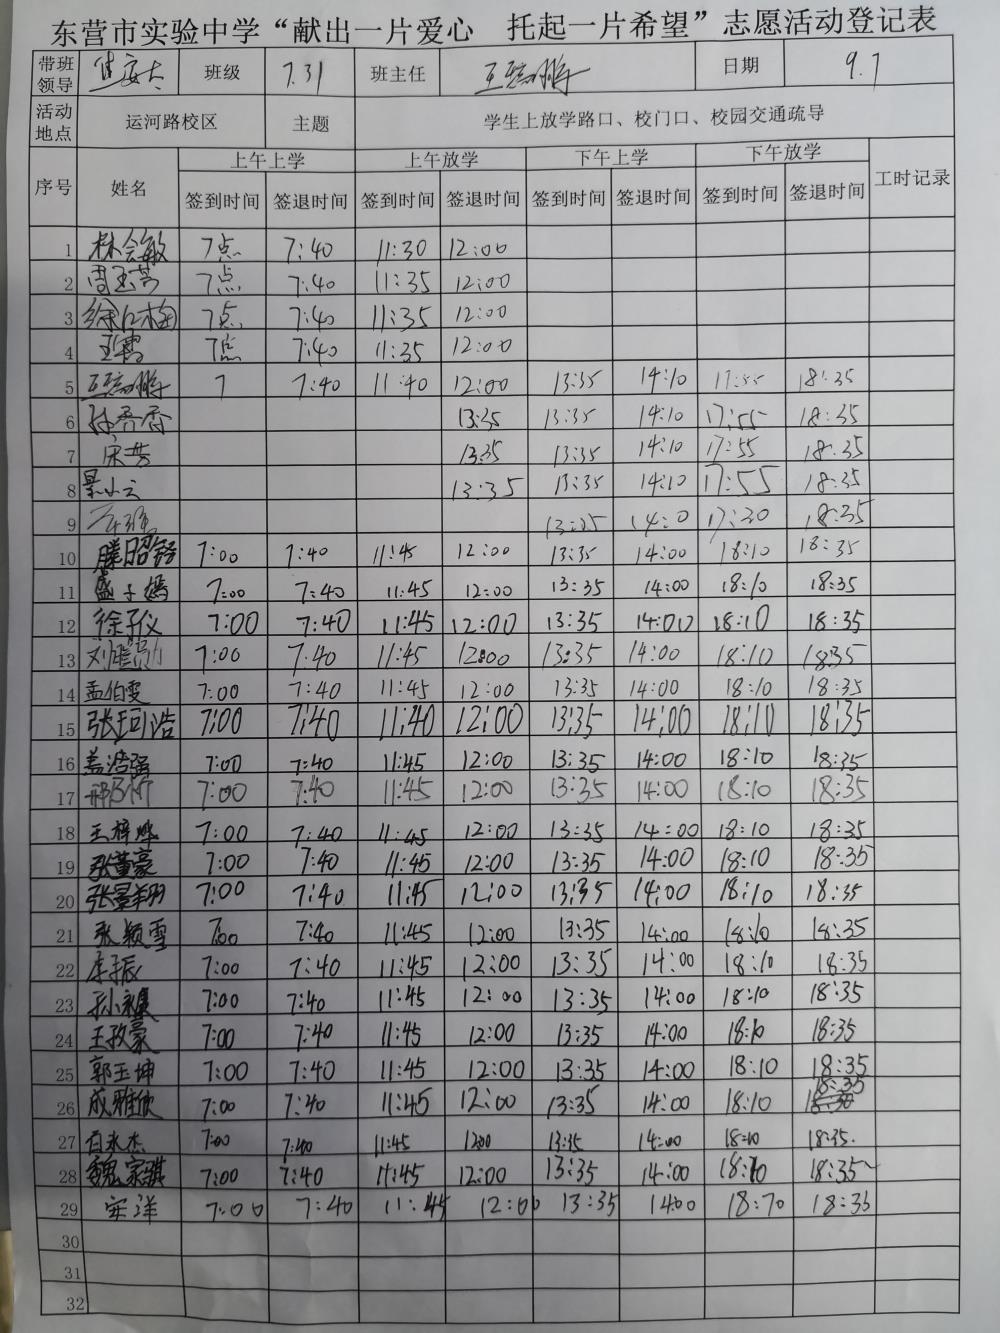 东营市实验中学“献出一片爱心 托起一片希望”志愿活动登记表
带班领导 班级 7.31 班主任 日期 9.7
活动地点 运河路校区 主题 学生上放学路口、校门口、校园交通疏导
序号 姓名 上午上学 上午放学 下午上学 下午放学 工时记录
签到时间 签退时间 签到时间 签退时间 签到时间 签退时间 签到时间 签退时间
1 林会敏 7点 7:40 11:30 12:00
2 周玉芳 7点 7:40 11:35 12:00
3 徐红梅 7点 7:40 11:35 12:00
4 王霞 7点 7:40 11:35 12:00
5 7 7:40 11:40 12:00 13:35 14:10 17:55 18:35
6 13:35 13:35 14:10 17:55 18:35
7 宋芳 13:35 13:35 14:10 17:55 18:35
8 景小云 13:35 13:35 14:10 17:55 18:35
9 18:35
10 滕昭舒 7:00 7:40 11:45 12:00 13:35 14:00 18:10 18:35
11 盛子嫣 7:00 7:40 11:45 12:00 13:35 14:00 18:10 18:35
12 徐子仪 7:00 7:40 11:45 12:00 13:35 14:00 18:10 18:35
13 7:00 7:40 11:45 12:00 13:35 14:00 18:10 18:35
14 孟伯雯 7:00 7:40 11:45 12:00 13:35 14:00 18:10 18:35
15 张珂浩 7:00 7:40 11:40 12:00 13:35 14:00 18:10 18:35
16 盖浩强 7:00 7:40 11:45 12:00 13:35 14:00 18:10 18:35
17 7:00 7:40 11:45 12:00 13:35 14:00 18:10 18:35
18 王梓烨 7:00 7:40 11:45 12:00 13:35 14:00 18:10 18:35
19 张萱豪 7:00 7:40 11:45 12:00 13:35 14:00 18:10 18:35
20 张景翔 7:00 7:40 11:45 12:00 13:35 14:00 18:10 18:35
21 张颖雪 7:00 7:40 11:45 12:00 13:35 14:00 18:10 18:35
22 李振 7:00 7:40 11:45 12:00 13:35 14:00 18:10 18:35
23 7:00 7:40 11:45 12:00 13:35 14:00 18:10 18:35
24 王孜豪 7:00 7:40 11:45 12:00 13:35 14:00 18:10 18:35
25 郭玉坤 7:00 7:40 11:45 12:00 13:35 14:00 18:10 18:35
26 成雅欣 7:00 7:40 11:45 12:00 13:35 14:00 18:10 18:35
27 白永杰 7:00 7:40 11:45 12:00 13:35 14:00 18:10 18:35.
28 魏家琪 7:00 7:40 11:45 12:00 13:35 14:00 18:10 18:35
29 宋洋 7:00 7:40 11:45 12:00 13:35 14:00 18:70 18:35
30
31
32